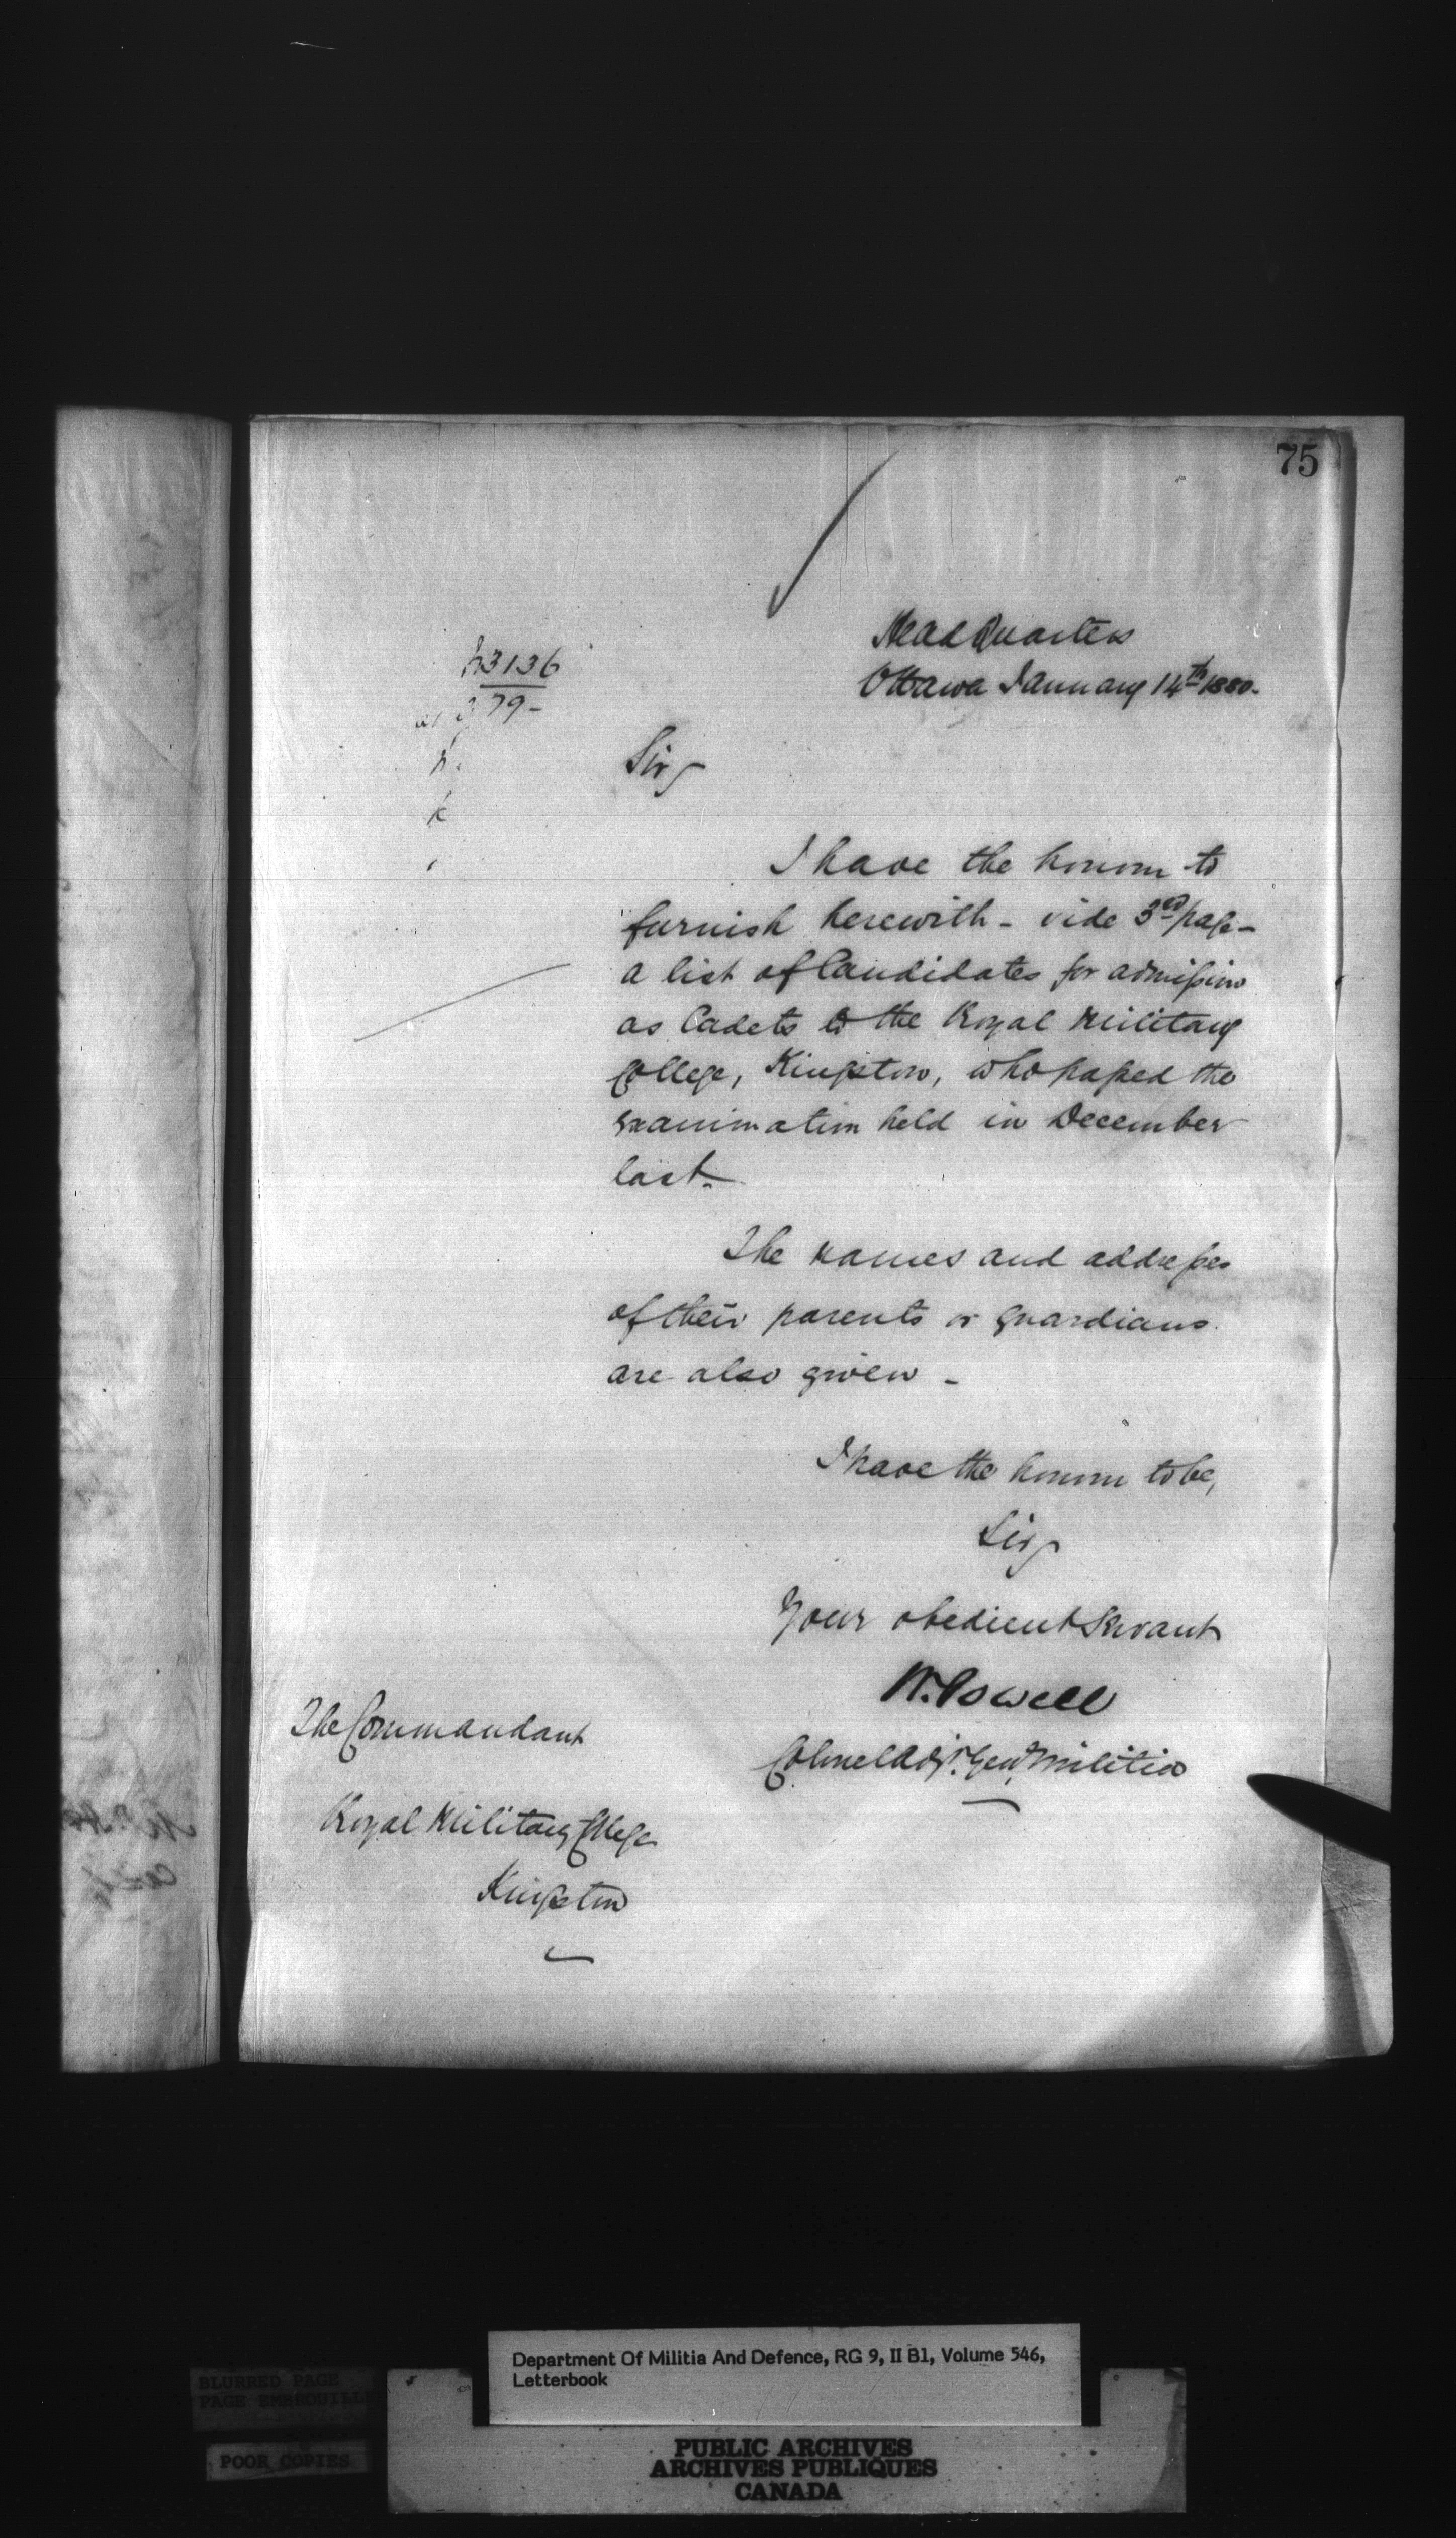 75
Head Quarters
Ottawa January 14th 1880.
3136
79-
Sir,
I have the honour to
furnish herewith - vide 3rd page -
a list of Candidates for admission
as Cadets to the Royal Military
College, Kingston, who passed the
examination held in December
last.
The names and addresses
of their parents or guardians
are also given -
I have the honour to be,
Sir,
Your obedient Servant
W. Powell
Colonel Adjt. Genl. Militia
The Commandant
Royal Military College
Kingston
Department Of Militia And Defence, RG 9, II B1, Volume 546,
Letterbook
BLURRED PAGE
PAGE EMBROUILL
POOR COPIES
PUBLIC ARCHIVES
ARCHIVES PUBLIQUES
CANADA